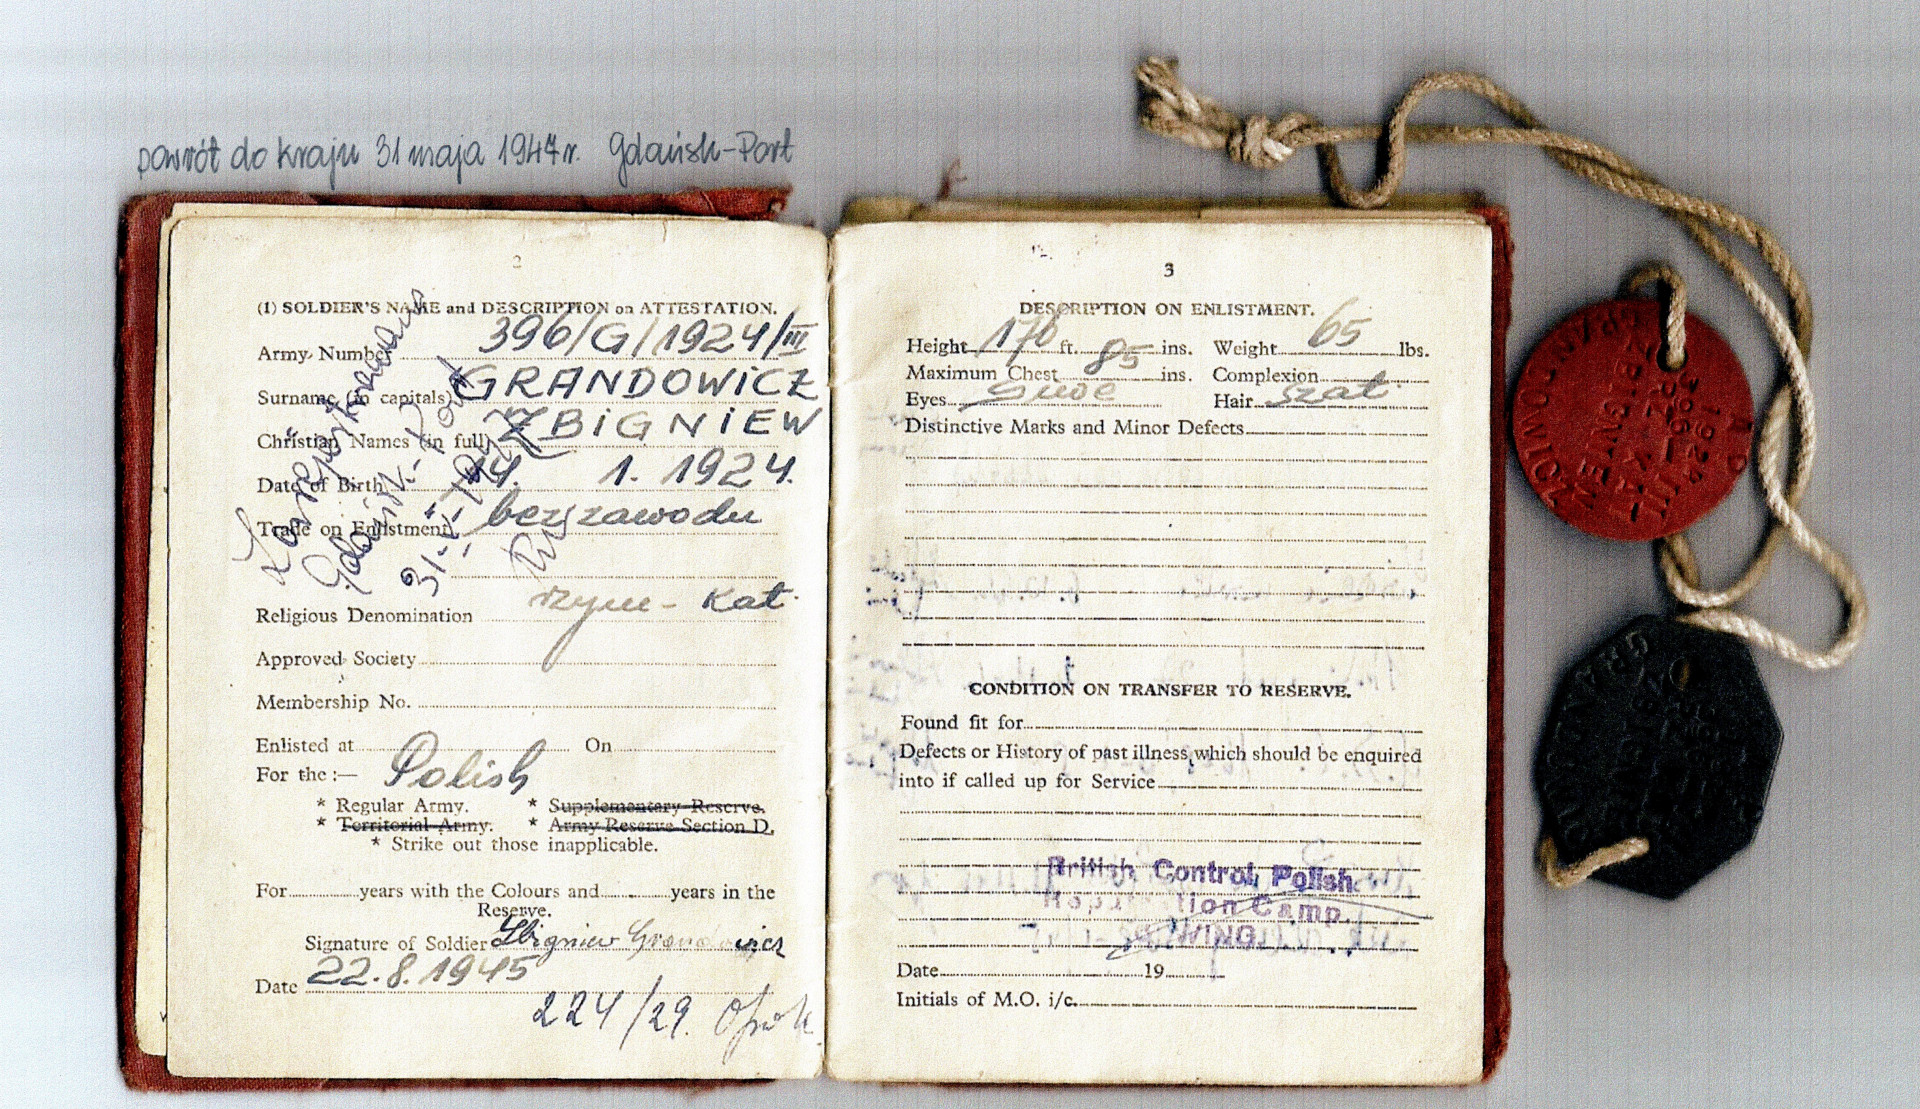 powrót do kraju 31 maja 1947r. Gdańsk-Port
2
(1) SOLDIER'S NAME and DESCRIPTION on ATTESTATION.
Army Number 396/G/1924/III
Surname (in capitals) GRANDOWICZ
Christian Names (in full) ZBIGNIEW
Date of Birth 14. 1. 1924.
Trade on Enlistment bez zawodu
Zarejestrowano
Gdańsk-Port
31-V-
Religious Denomination rzym-kat.
Approved Society
Membership No.
Enlisted at On
For the :— Polish
* Regular Army. * Supplementary Reserve.
* Territorial Army. * Army Reserve Section D.
* Strike out those inapplicable.
For years with the Colours and years in the
Reserve.
Signature of Soldier Zbigniew Grandowicz
Date 22.8.1945
224/29.
3
DESCRIPTION ON ENLISTMENT.
Height 170 ft. ins. Weight 65 lbs.
Maximum Chest 85 ins. Complexion
Eyes siwe Hair szat
Distinctive Marks and Minor Defects
CONDITION ON TRANSFER TO RESERVE.
Found fit for
Defects or History of past illness which should be enquired
into if called up for Service
British Control Polish
Camp.
WING.
Date 19
Initials of M.O. i/c.
GRANDOWICZ
ZBIGNIEW
1924 III